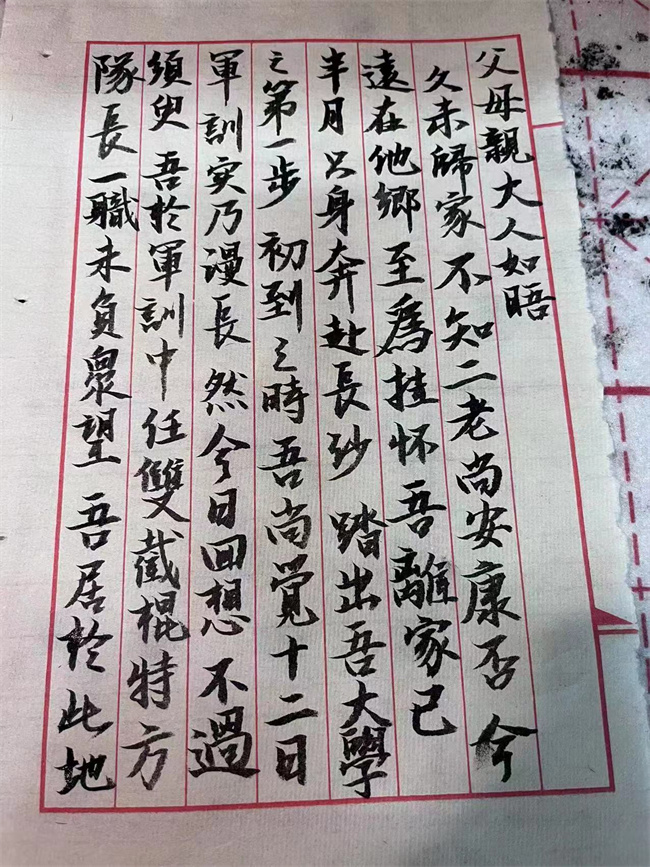 父母親大人如晤
久未歸家 不知二老尚安康否 今
遠在他鄉 至爲挂怀 吾離家已
半月 只身奔赴長沙 踏出吾大學
之第一步 初到之時 吾尚覺十二日
軍訓实乃漫長 然今日回想 不過
須臾 吾於軍訓中任雙截棍特方
隊長一職 未負衆望 吾居於此地